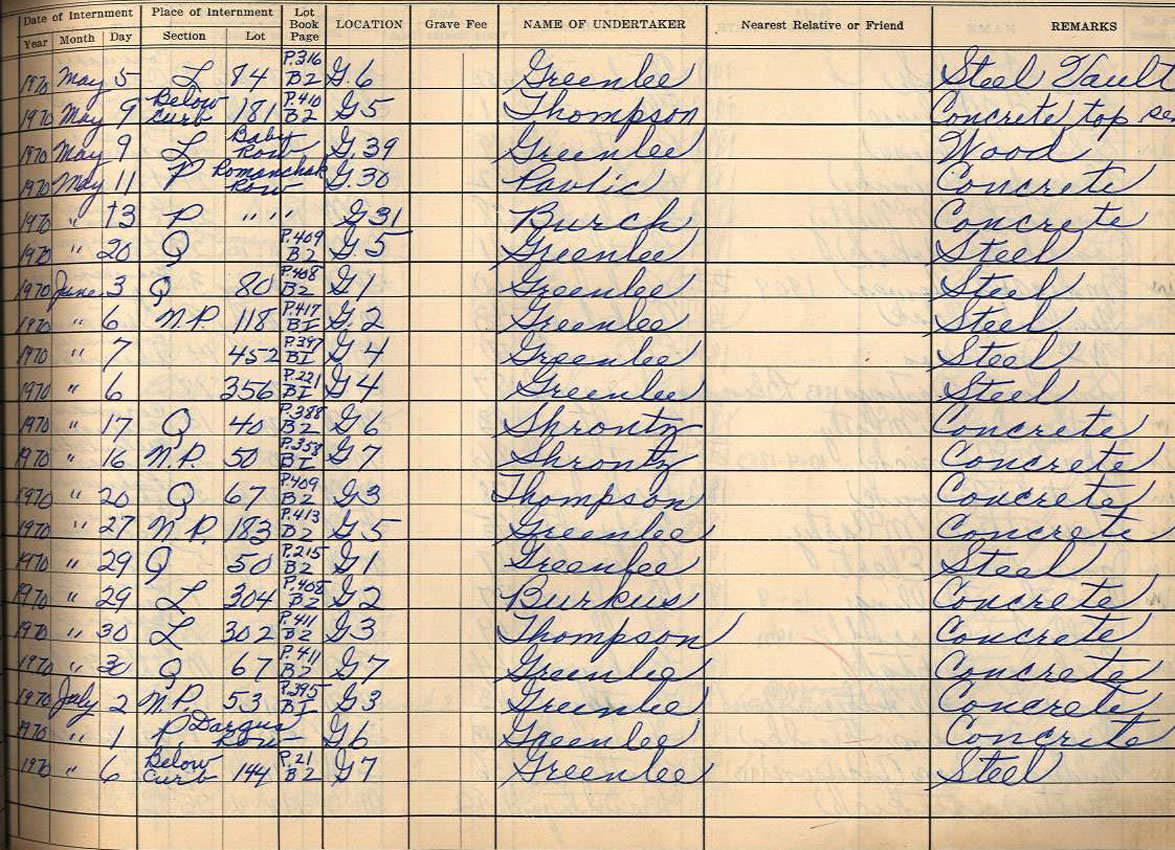 Date of Internment Place of Internment Lot Book Page LOCATION Grave Fee NAME OF UNDERTAKER Nearest Relative or Friend REMARKS
Year Month Day Section Lot
1970 May 5 L 84 P.316 B2 G.6 Greenlee Steel Vault
1970 May 9 Below Curb 181 P.410 B2 G5 Thompson Concrete top se
1970 May 9 L Baby Row G.39 Greenlee Wood
1970 May 11 P Romanchak Row G.30 Pavlic Concrete
1970 " 13 P " " " G31 Burch Concrete
1970 " 20 Q P.409 B2 G.5 Greenlee Steel
1970 June 3 Q 80 P.408 B2 G1 Greenlee Steel
1970 " 6 N.P. 118 P.417 BI G.2 Greenlee Steel
1970 " 7 452 P.397 BI G4 Greenlee Steel
1970 " 6 356 P.221 BI G4 Greenlee Steel
1970 " 17 Q 40 P.388 B2 G6 Shrontz Concrete
1970 " 16 N.P. 50 P.358 BI G7 Shrontz Concrete
1970 " 20 Q 67 P.409 B2 G3 Thompson Concrete
1970 " 27 N.P. 183 P.413 B2 G5 Greenlee Concrete
1970 " 29 Q 50 P.215 B2 G1 Greenlee Steel
1970 " 29 L 304 P.408 B2 G2 Burkus Concrete
1970 " 30 L 302 P.411 B2 G3 Thompson Concrete
1970 " 30 Q 67 P.411 B2 G7 Greenlee Concrete
1970 July 2 N.P. 53 P.395 BI G3 Greenlee Concrete
1970 " 1 P Dargus Row G6 Greenlee Concrete
1970 " 6 Below Curb 144 P.21 B2 G7 Greenlee Steel